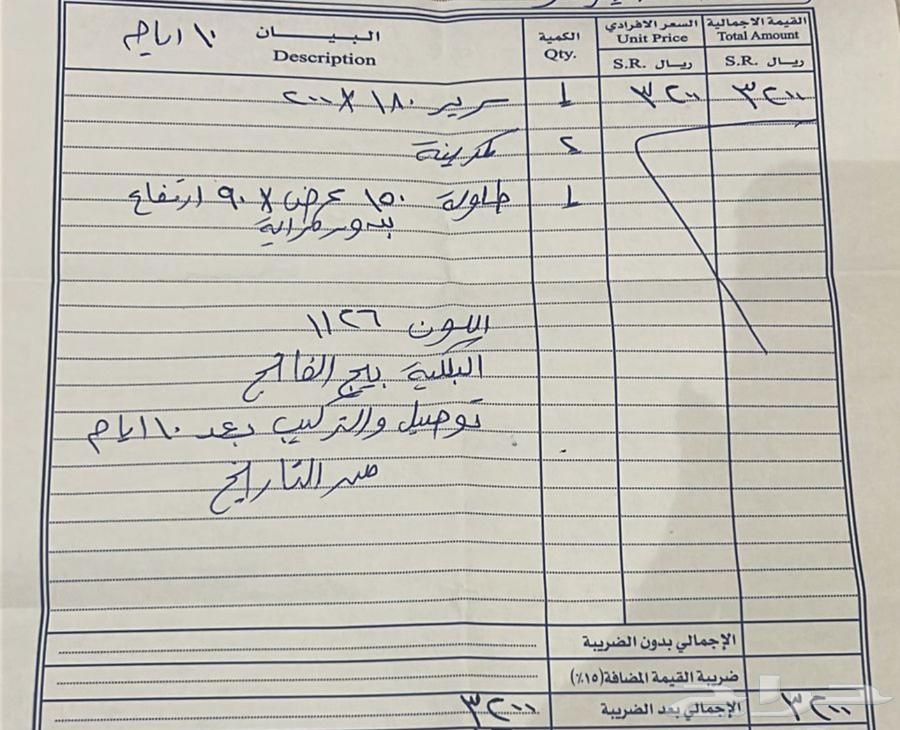 القيمة الاجمالية السعر الافرادي الكمية البيـــــان ١٠ ايام
Total Amount Unit Price Qty. Description
ريـال S.R. ريـال S.R.
٣٢٠٠ ٣٢٠٠ 1 سرير ١٨٠ X ٢٠٠
٢ كمدينة
1 طاولة ١٥٠ عرض X ٩٠ ارتفاع
بدور مراية
اللون ١١٢٦
البلكية بيج الفاتح
توصيل والتركيب بعد ١٠ ايام
من التاريخ
الإجمالي بدون الضريبة
ضريبة القيمة المضافة (١٥٪)
٣٢٠٠ الإجمالي بعد الضريبة ٣٢٠٠
حراج